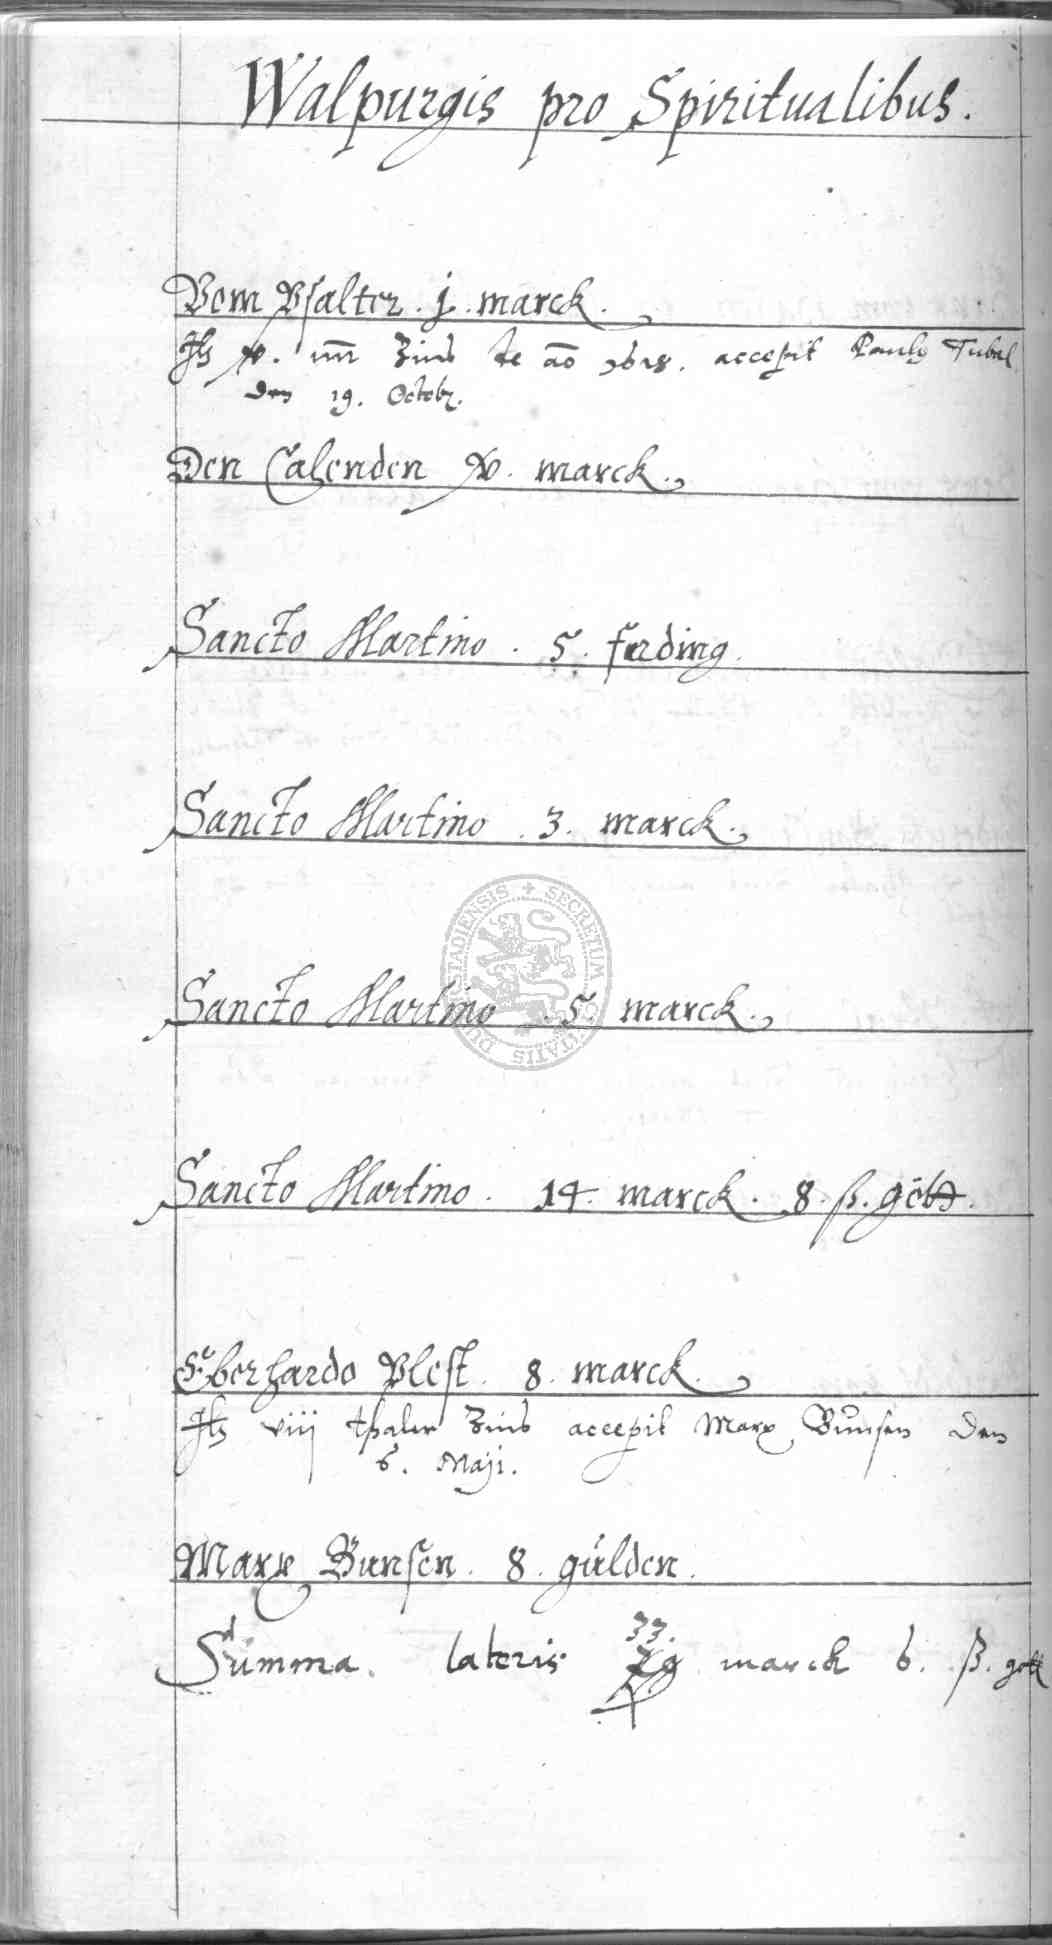 Walpurgis pro Spiritualibus.
Vom Psalter . j . marck .
Zins de ao 1618. accepit Pauly Tubel
den 19. Octobr.
Den Calenden marck .
Sancto Martino . 5 . ferding .
Sancto Martino . 3 . marck .
Sancto Martino . 5 . marck .
Sancto Martino . 14 . marck . 8 . ß . gött .
Eberhardo Plest . 8 . marck .
viij thaler Zins accepit Marx Bunsen den
6 . Maji .
Marx Bunsen . 8 . gülden .
33 .
Summa . lateris marck 6 . ß . gött
SECRETUM CIVITATIS DUDERSTADIENSIS